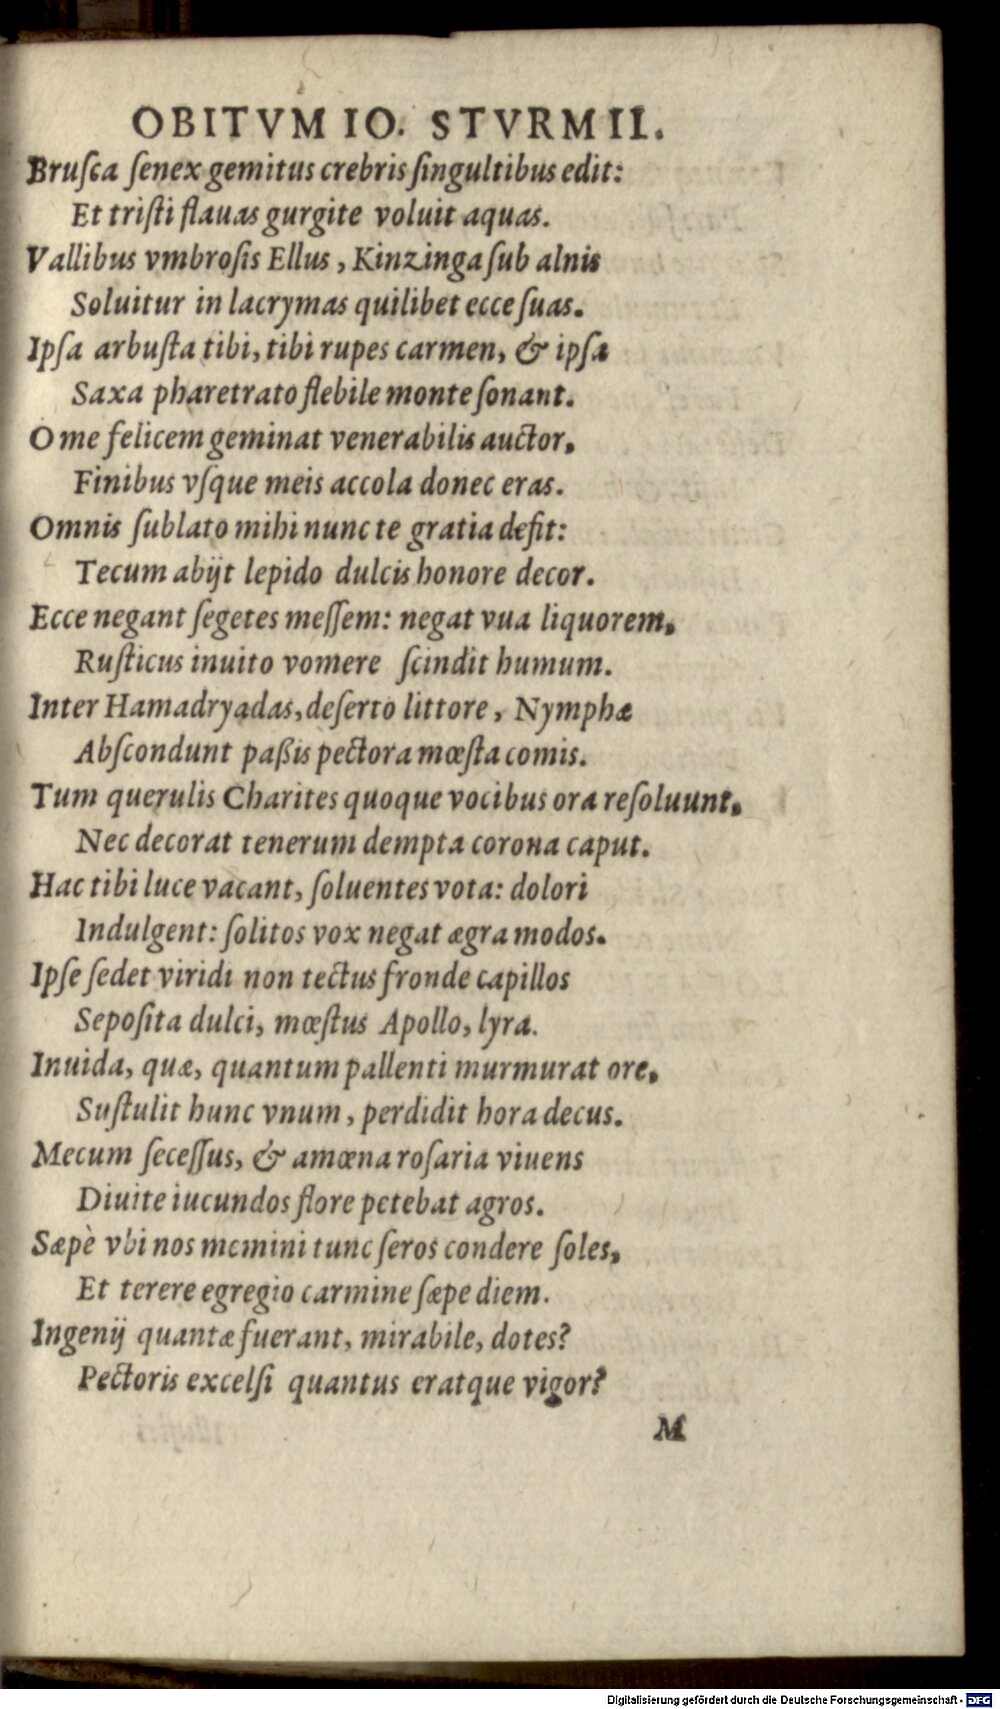 OBITVM IO. STVRMII.
Bruſca ſenex gemitus crebris ſingultibus edit:
Et triſti flauas gurgite voluit aquas.
Vallibus vmbroſis Ellus, Kinzinga ſub alnis
Soluitur in lacrymas quilibet ecce ſuas.
Ipſa arbuſta tibi, tibi rupes carmen, & ipſa
Saxa pharetrato flebile monte ſonant.
O me felicem geminat venerabilis auctor,
Finibus vſque meis accola donec eras.
Omnis ſublato mihi nunc te gratia defit:
Tecum abijt lepido dulcis honore decor.
Ecce negant ſegetes meſſem: negat vua liquorem,
Ruſticus inuito vomere ſcindit humum.
Inter Hamadryadas, deſerto littore, Nymphæ
Abſcondunt paßis pectora mœſta comis.
Tum querulis Charites quoque vocibus ora reſoluunt,
Nec decorat tenerum dempta corona caput.
Hac tibi luce vacant, ſoluentes vota: dolori
Indulgent: ſolitos vox negat ægra modos.
Ipſe ſedet viridi non tectus fronde capillos
Sepoſita dulci, mœſtus Apollo, lyra.
Inuida, quæ, quantum pallenti murmurat ore,
Suſtulit hunc vnum, perdidit hora decus.
Mecum ſeceſſus, & amœna roſaria viuens
Diuite iucundos flore petebat agros.
Sæpè vbi nos memini tunc ſeros condere ſoles,
Et terere egregio carmine ſæpe diem.
Ingenij quantæ fuerant, mirabile, dotes?
Pectoris excelſi quantus eratque vigor?
M
Digitalisierung gefördert durch die Deutsche Forschungsgemeinschaft - DFG